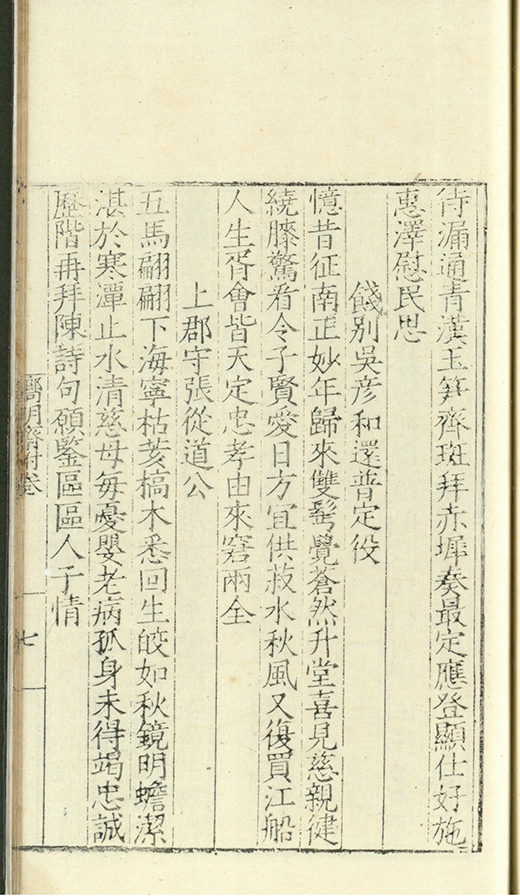 待漏通青漢玉笋齊班拜赤墀奏最定應登顯仕好施
惠澤慰民思
餞别吳彦和還普定役
憶昔征南正妙年歸來雙髩覺蒼然升堂喜見慈親健
繞膝驚看令子賢愛日方宜供菽水秋風又復買江船
人生胥會皆天定忠孝由來窘兩全
上郡守張從道公
五馬翩翩下海寧枯荄槁木悉回生皎如秋鏡明蟾潔
湛於寒潭止水清慈母每憂嬰老病孤身未得竭忠誠
歷階再拜陳詩句願鑒區區人子情
七